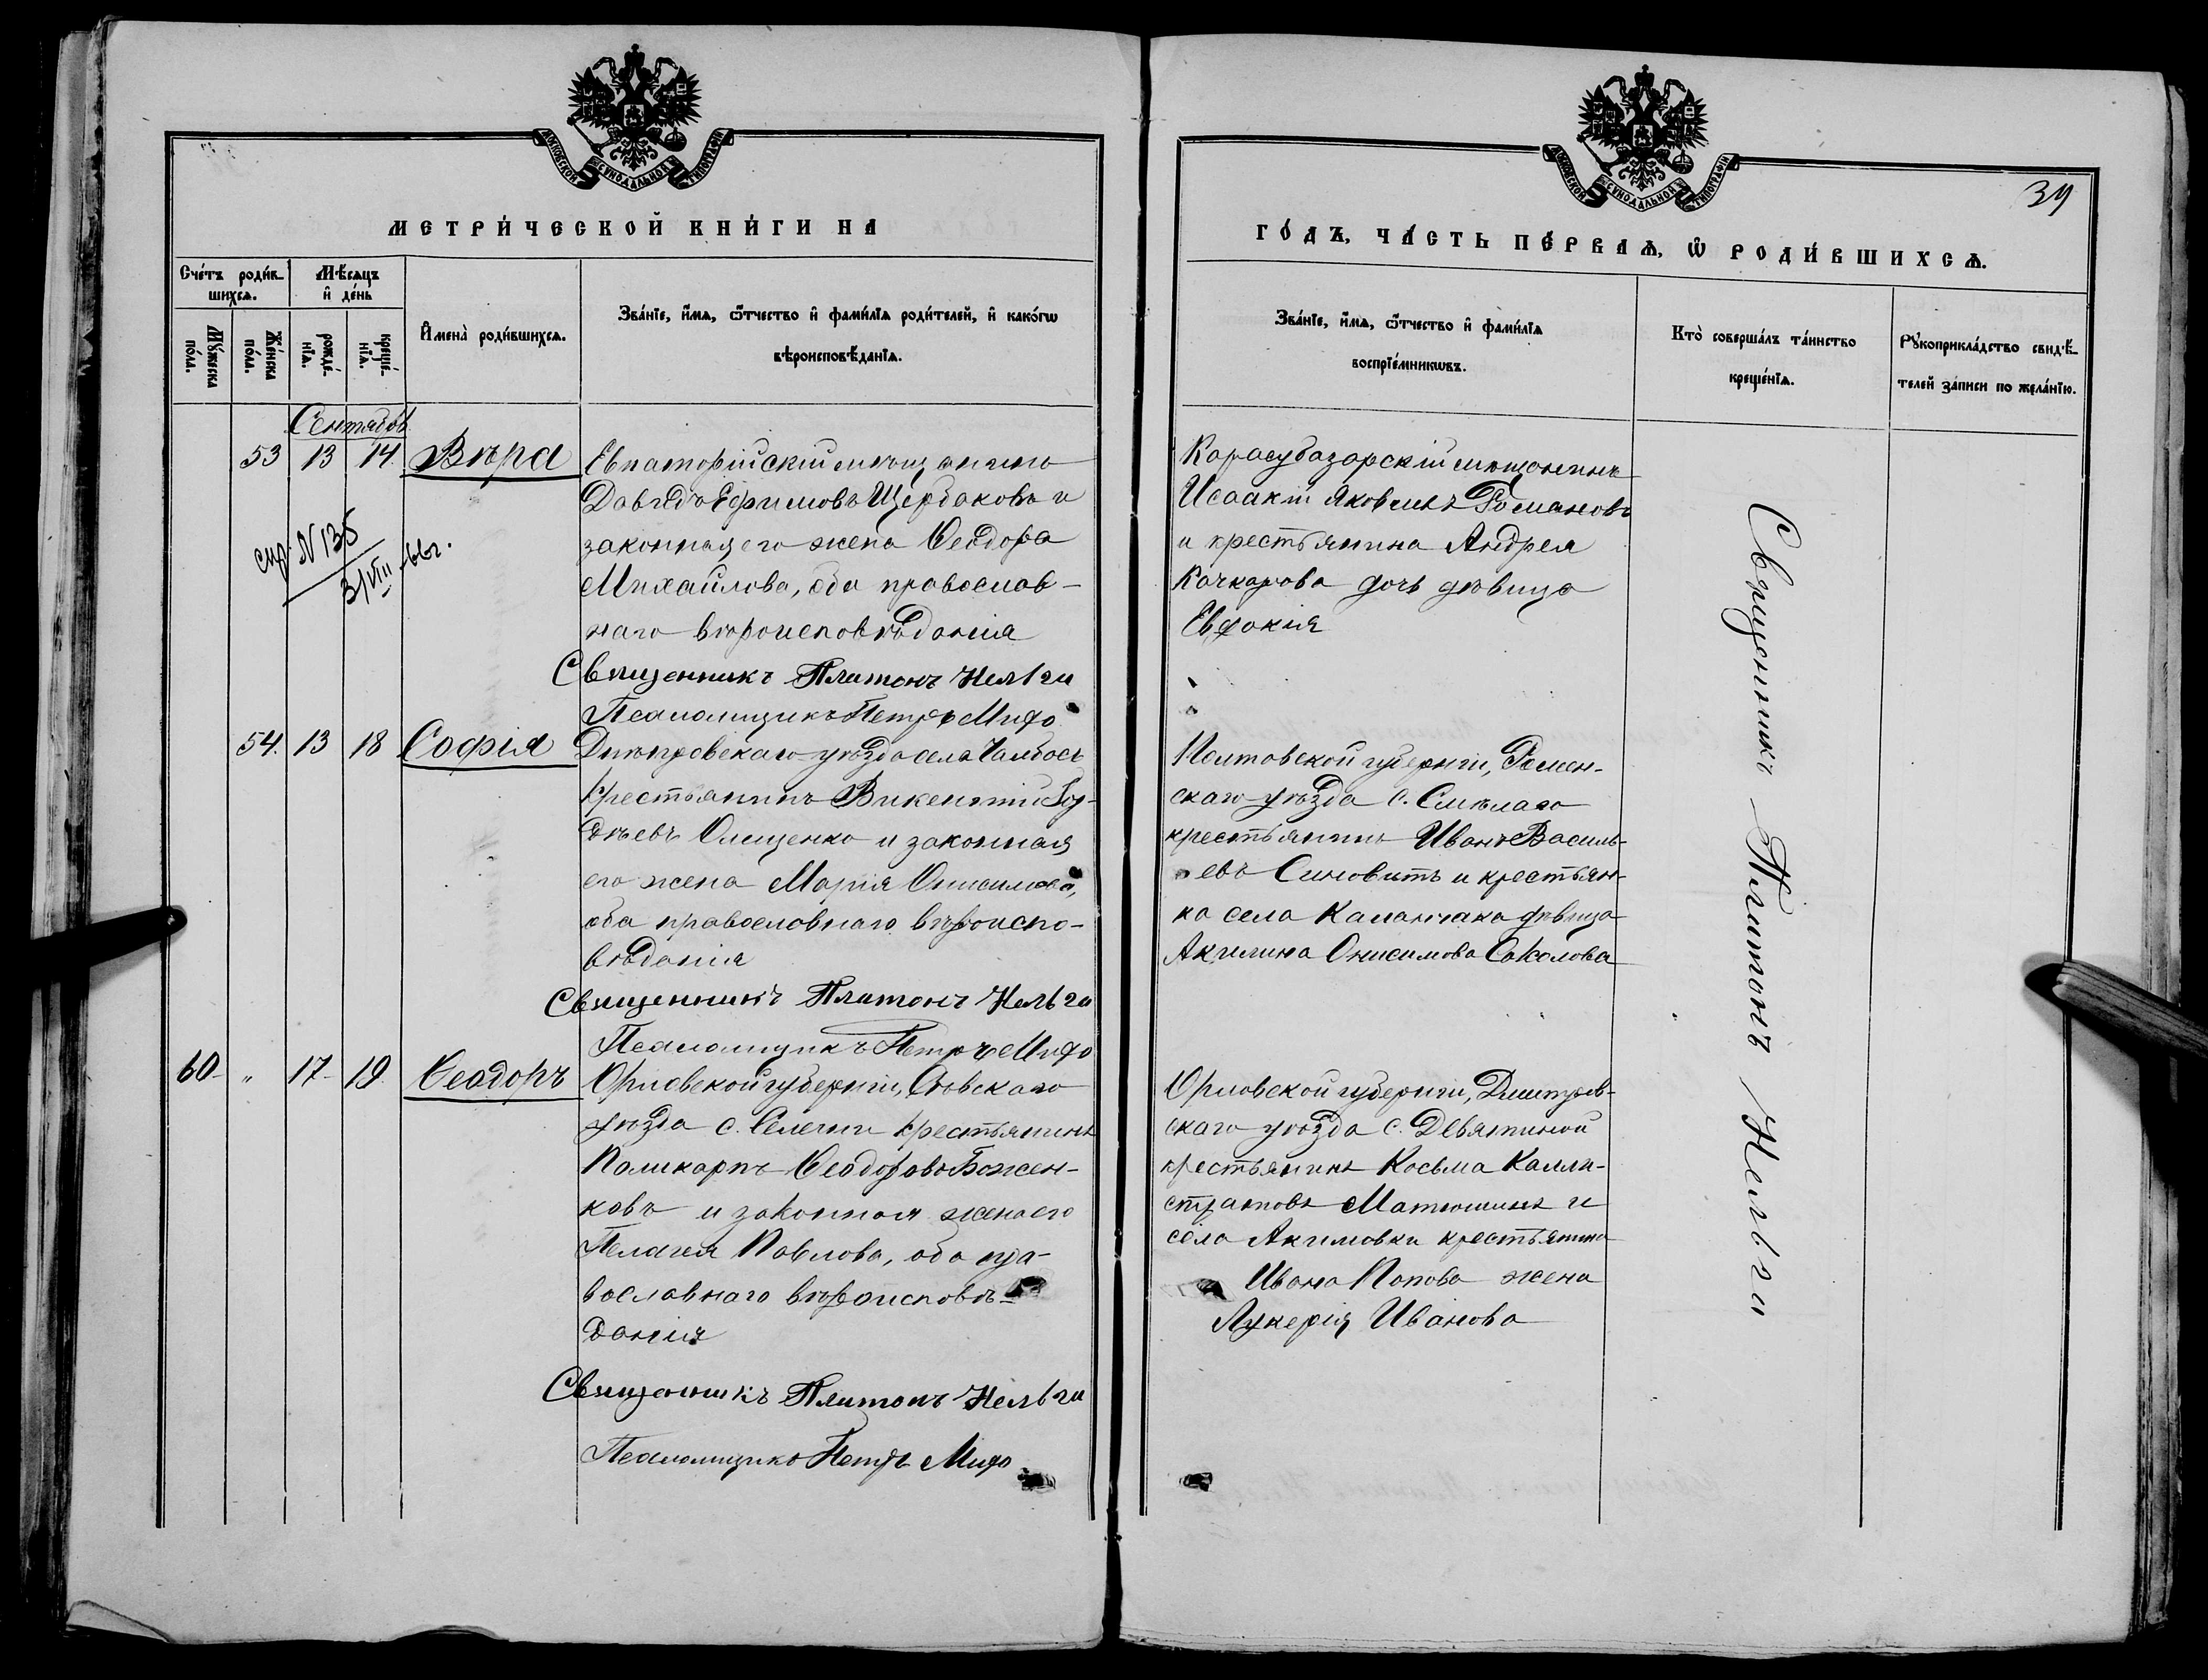 МОСКОВСКОЙ СѴНОДАЛЬНОЙ ТИПОГРАФІИ
МЕТРИ́ЧЕСКОЙ КНИ́ГИ НА
Сче́тъ роди́в-
шихся.
Мѣ́сяцъ
и҆ де́нь
Мꙋ́жеска
по́ла.
Же́нска
по́ла.
рожде́-
нїѧ.
креще́-
нїѧ.
И҆мена̀ роди́вшихсѧ.
Зва́нїе, и҆́мѧ, ѻ҆́тчество и҆ фами́лїѧ роди́телей, и҆ како́гѡ
вѣроисповѣ́данїѧ.
Сентябрь
53 13 14. Вѣра
Евпаторійскій мѣщанинъ
Давидъ Ефимовъ Щербаковъ и
законная его жена Ѳеодора
Михайлова, оба православ-
наго вѣроисповѣданія
спр. N 135
3/VIII -66г.
Священникъ Платонъ Нельги
Псаломщикъ Петръ Мифо
54. 13 18 Софія
Днѣпровскаго уѣзда села Чалбасъ
крестьянинъ Викентій Гор-
дѣевъ Олещенко и законная
его жена Марія Онисимова,
оба православнаго вѣроиспо-
вѣданія
Священникъ Платонъ Нельги
Псаломщикъ Петръ Мифо
60 " 17 19. Ѳеодоръ
Орловской губерніи, Сѣвскаго
уѣзда с. Селечни крестьянинъ
Поликарпъ Ѳеодоровъ Божен-
ковъ и законная жена его
Пелагея Павлова, оба пра-
вославнаго вѣроисповѣ-
данія
Священникъ Платонъ Нельги
Псаломщикъ Петръ Мифо
МОСКОВСКОЙ СѴНОДАЛЬНОЙ ТИПОГРАФІИ
39
ГО́ДЪ, ЧА́СТЬ ПЕ́РВАѦ, Ѽ РОДИ́ВШИХСѦ.
Зва́нїе, и҆́мѧ, ѻ҆́тчество и҆ фами́лїѧ
воспрїе́мникѡвъ.
Кто̀ соверша́лъ та́инство
креще́нїѧ.
Рꙋкоприкла́дство свидѣ́-
телей за́писи по жела́нїю.
Карасубазарскій мѣщанинъ
Исаакій Яковлевъ Романовъ
и крестьянина Андрея
Качкарова дочь дѣвица
Евдокія
Полтовской губерніи, Ромен-
скаго уѣзда с. Смѣлаго
крестьянинъ Иванъ Василь-
евъ Синовитъ и крестьян-
ка села Каланчака дѣвица
Акилина Онисимова Соколова
Орловской губерніи, Дмитров-
скаго уѣзда с. Девятиной
крестьянинъ Косьма Калли-
стратовъ Матюшинъ и
села Акимовки крестьянина
Ивана Попова жена
Лукерія Иванова
Священникъ Платонъ Нельги